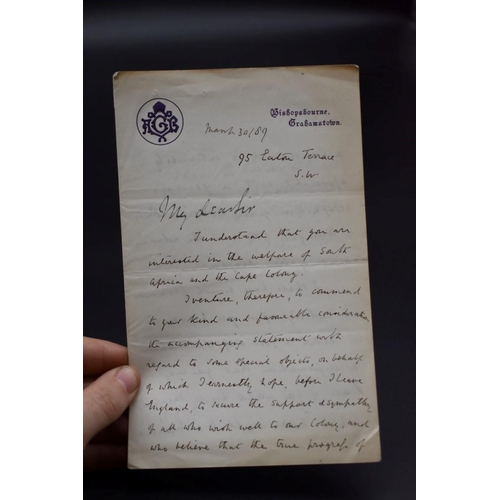 Bishopsbourne,
Grahamstown.
March 30/89
95 Eaton Terrace
S.W
My dear Sir
I understand that you are
interested in the welfare of South
Africa and the Cape Colony.
I venture, therefore, to commend
to your kind and favourable consideration
the accompanying statement with
regard to some special objects, on behalf
of which I earnestly hope, before I leave
England, to secure the support & sympathy
of all who wish well to our Colony, and
who believe that the true progress of